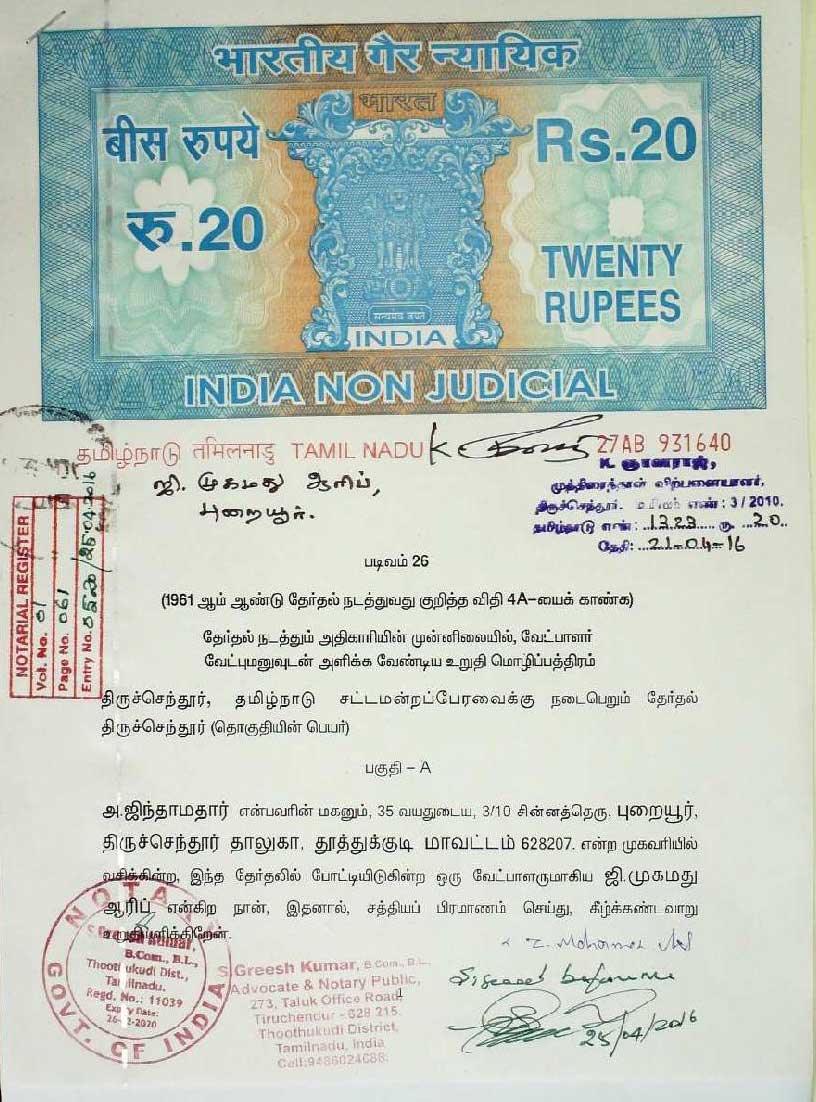 भारतीय गैर न्यायिक
भारत
बीस रुपये
Rs.20
रु.20
TWENTY
RUPEES
सत्यमेव जयते
INDIA
INDIA NON JUDICIAL
தமிழ்நாடு तमिलनाडु TAMIL NADU
27AB 931640
ஜி. முகமது ஆரிப்,
புறையூர்.
K. ஞானராஜ்,
முத்திரைத்தாள் விற்பனையாளர்,
திருச்செந்தூர். உரிமம் எண் : 3/2010.
தமிழ்நாடு எண் : 1323 ரூ 20
தேதி: 21-04-16
NOTARIAL REGISTER
Vol. No. 01
Page No. 061
Entry No. /25.04.2016
படிவம் 26
(1961 ஆம் ஆண்டு தேர்தல் நடத்துவது குறித்த விதி 4A-யைக் காண்க)
தேர்தல் நடத்தும் அதிகாரியின் முன்னிலையில், வேட்பாளர்
வேட்புமனுவுடன் அளிக்க வேண்டிய உறுதி மொழிப்பத்திரம்
திருச்செந்தூர், தமிழ்நாடு சட்டமன்றப்பேரவைக்கு நடைபெறும் தேர்தல்
திருச்செந்தூர் (தொகுதியின் பெயர்)
பகுதி – A
அ.ஜிந்தாமதார் என்பவரின் மகனும், 35 வயதுடைய, 3/10 சின்னத்தெரு, புறையூர்,
திருச்செந்தூர் தாலுகா, தூத்துக்குடி மாவட்டம் 628207. என்ற முகவரியில்
வசிக்கின்ற, இந்த தேர்தலில் போட்டியிடுகின்ற ஒரு வேட்பாளருமாகிய ஜி.முகமது
ஆரிப் என்கிற நான், இதனால், சத்தியப் பிரமாணம் செய்து, கீழ்க்கண்டவாறு
உறுதியளிக்கிறேன்.
NOTARY
B.Com., B.L.,
Thoothukudi Dist.,
Tamilnadu.
Regd. No.: 11039
Expiry Date:
26-02-2020
GOVT. OF INDIA
S.Greesh Kumar, B.Com., B.L.,
Advocate & Notary Public,
273, Taluk Office Road
Tiruchendur - 628 215.
Thoothukudi District,
Tamilnadu, India
Cell:9486024688.
Signed before me
25/04/2016